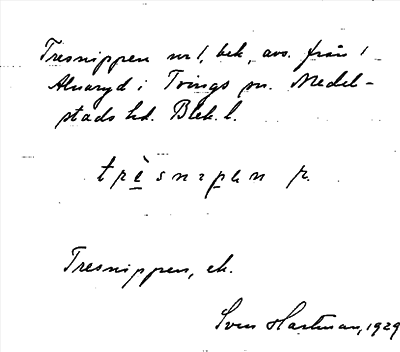 Tresnippen nr 1, bek, avs. från 1
Alnaryd i Tvings sn. Medel-
stads hd. Blek. l.
trè̱snıpen p.
Tresnippen, ek.
Sven Hartman, 1929